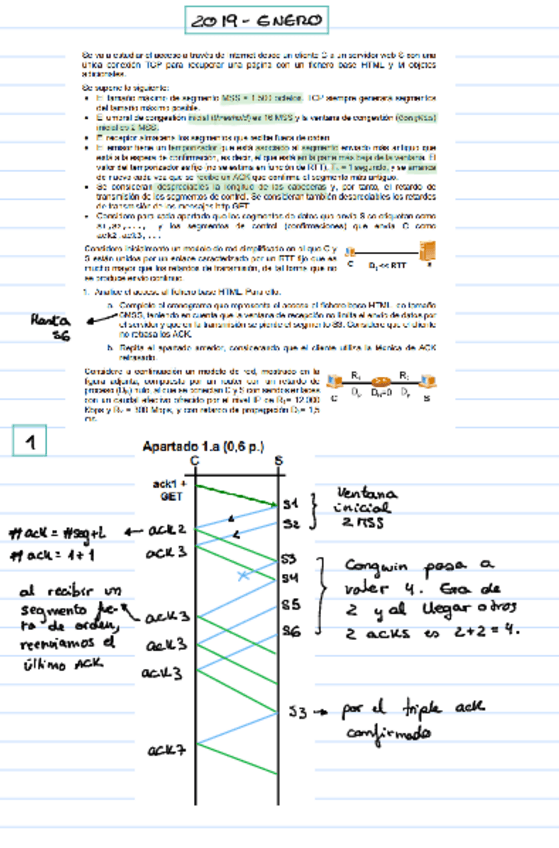 2019 - ENERO
Se va a estudiar el acceso a través de Internet desde un cliente C a un servidor web S con una
única conexión TCP para recuperar una página con un fichero base HTML y M objetos
adicionales.
Se supone lo siguiente:
El tamaño máximo de segmento MSS = 1 500 octetos. TCP siempre generará segmentos
del tamaño máximo posible.
El umbral de congestión inicial (threshold) es 16 MSS y la ventana de congestión (CongWin)
inicial es 2 MSS.
El receptor almacena los segmentos que recibe fuera de orden.
El emisor tiene un temporizador que está asociado al segmento enviado más antiguo que
está a la espera de confirmación, es decir, el que está en la parte más baja de la ventana. El
valor del temporizador es fijo (no se estima en función de RTT), = 1 segundo, y se arranca
de nuevo cada vez que se recibe un ACK que confirme el segmento más antiguo.
Se consideran despreciables la longitud de las cabeceras y, por tanto, el retardo de
transmisión de los segmentos de control. Se consideran también despreciables los retardos
de transmisión de los mensajes http GET
Considere para cada apartado que los segmentos de datos que envía S se etiquetan como
s1, s2, ..., y los segmentos de control (confirmaciones) que envía C como
ack2, ack3, ...
Considere inicialmente un modelo de red simplificado en el que C y
S están unidos por un enlace caracterizado por un RTT fijo que es
mucho mayor que los retardos de transmisión, de tal forma que no
se produce envío continuo.
C D₁ << RTT S
1. Analice el acceso al fichero base HTML. Para ello:
a. Complete el cronograma que representa el acceso al fichero base HTML, de tamaño
6MSS, teniendo en cuenta que la ventana de recepción no limita el envío de datos por
el servidor y que en la transmisión se pierde el segmento S3. Considere que el cliente
no retrasa los ACK.
Hasta
S6
b. Repita el apartado anterior, considerando que el cliente utiliza la técnica de ACK
retrasado.
Considere a continuación un modelo de red, mostrado en la
figura adjunta, compuesto por un router con un retardo de
proceso nulo, al que se conectan C y S con sendos enlaces
con un caudal efectivo ofrecido por el nivel IP de R₁= 12 000
Kbps y R₂ = 300 Mbps, y con retardo de propagación = 1,5
ms.
R₁ R₂
C S
1
Apartado 1.a (0,6 p.)
C S
ack1 +
GET
S1
S2
Ventana
inicial
2 MSS
ack2
ack3
#ack = #seg+1
#ack = 1+1
S3
S4
S5
S6
Congwin pasa a
valer 4. Era de
2 y al llegar otros
2 acks es 2+2=4.
al recibir un
segmento fue-
ra de orden,
reenviamos el
último ACK
ack3
ack3
ack3
S3 → por el triple ack
confirmado
ack7